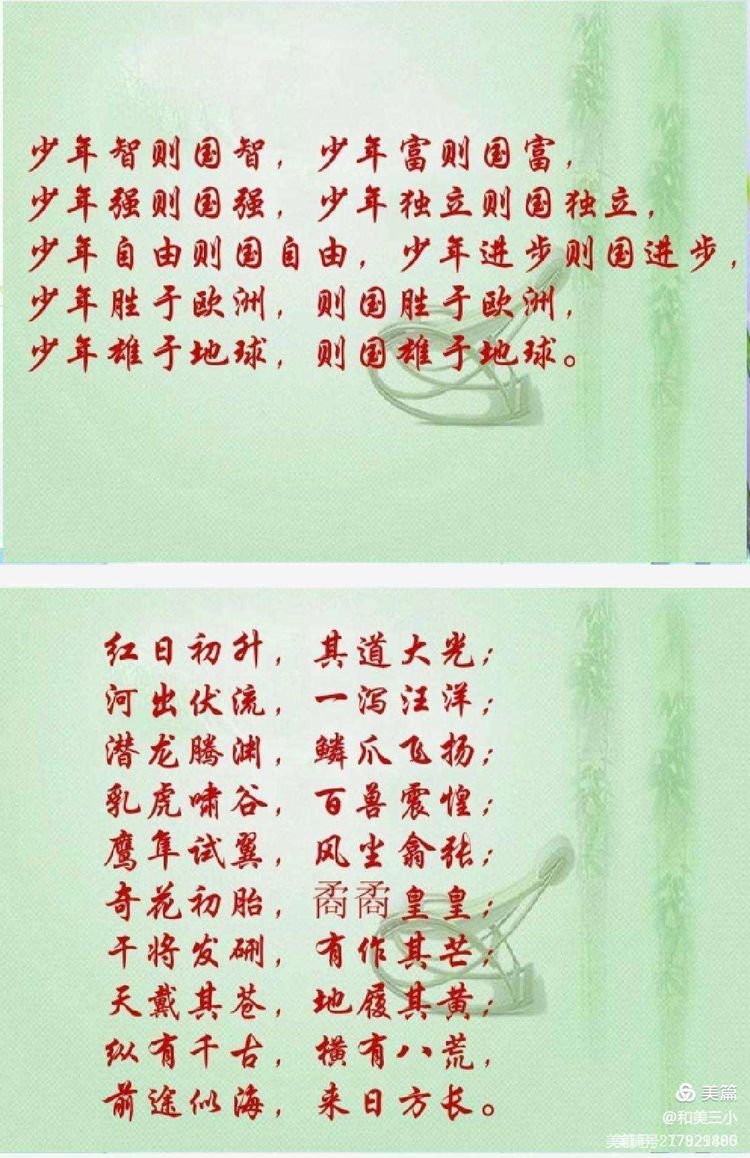 少年智则国智，少年富则国富，
少年强则国强，少年独立则国独立，
少年自由则国自由，少年进步则国进步，
少年胜于欧洲，则国胜于欧洲，
少年雄于地球，则国雄于地球。
红日初升，其道大光；
河出伏流，一泻汪洋；
潜龙腾渊，鳞爪飞扬；
乳虎啸谷，百兽震惶；
鹰隼试翼，风尘翕张；
奇花初胎，矞矞皇皇；
干将发硎，有作其芒；
天戴其苍，地履其黄；
纵有千古，横有八荒，
前途似海，来日方长。
美篇
@和美三小